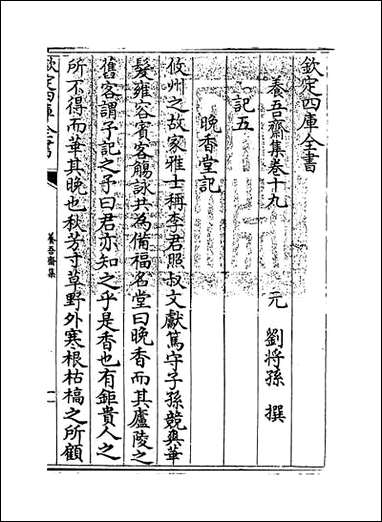 欽定四庫全書
養吾齋集卷十九
元 劉將孫 撰
記五
晚香堂記
攸州之故家雅士稱李君照叔文獻篤守子孫競爽華
髮雍容賓客觴詠共為備福名堂曰晚香而其廬陵之
舊客謂予記之予曰君亦知之乎是香也有鉅貴人之
所不得而華其晚也秋芳寸草野外寒根枯槁之所顧
欽定四庫全書
養吾齋集